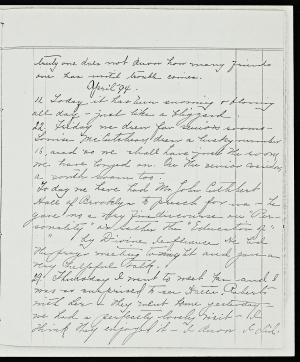 truly one does not know how many friends
one has until trouble comes.
April 94.
11 Today it has been snowing & blowing
all day - just like a blizzard.
22. Friday we drew for senior rooms -
Louise McCutcheon drew a lucky number
15, and so we shall have just the room
we have longed for. On the senior corridor
a south room too.
Today we have had Mr. John Cuthbert
Hall of Brooklyn to preach for us - he
gave us a very fine discourse on "Per-
sonality" or rather the "Education of"
" by Divine influence. He led
the prayer meeting and gave a
very helpful talk.
29. Thursday I went to meet and I
was so surprised to see
with her - they went home yesterday -
we had a perfectly lovely visit - I
think they enjoyed it - I know I did.